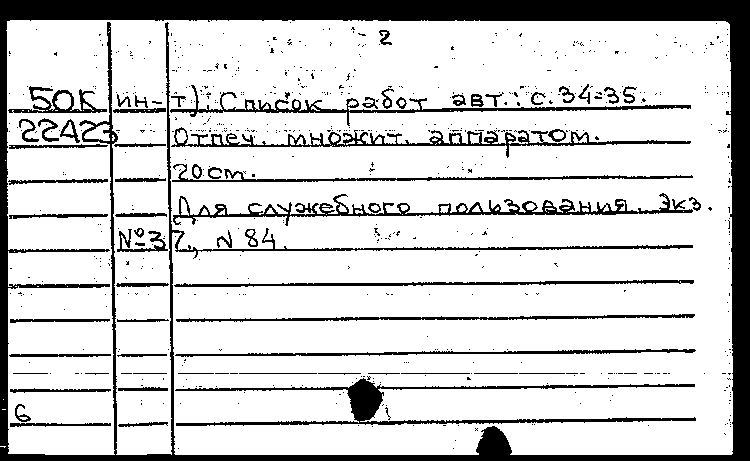 2
50К ин-т). Список работ авт.: с.34-35.
22423 Отпеч. множит. аппаратом.
20 см.
Для служебного пользования. Экз.
№37., N 84.
6